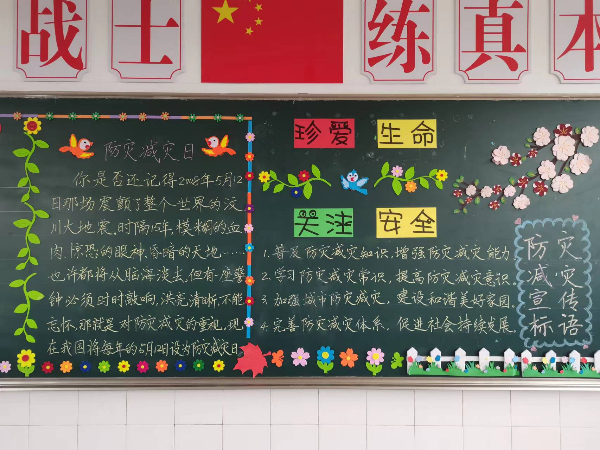 战士 练真本
防灾减灾日
你是否还记得2008年5月12
日那场震颤了整个世界的汶
川大地震,时隔15年,模糊的血
肉,惊恐的眼神,昏暗的天地……
也许都将从临海淡去,但有一座警
钟必须时时敲响,洪亮清晰,不能
忘怀,那就是对防灾减灾的重视,现
在我国将每年的5月12日设为防灾减灾日
珍爱 生命
哭注 安全
1.普及防灾减灾知识,增强防灾减灾能力
2.学习防灾减灾常识,提高防灾减灾意识.
3.加强城市防灾减灾,建设和谐美好家园.
4.完善防灾减灾体系,促进社会持续发展.
防灾
减灾
宣传
标语